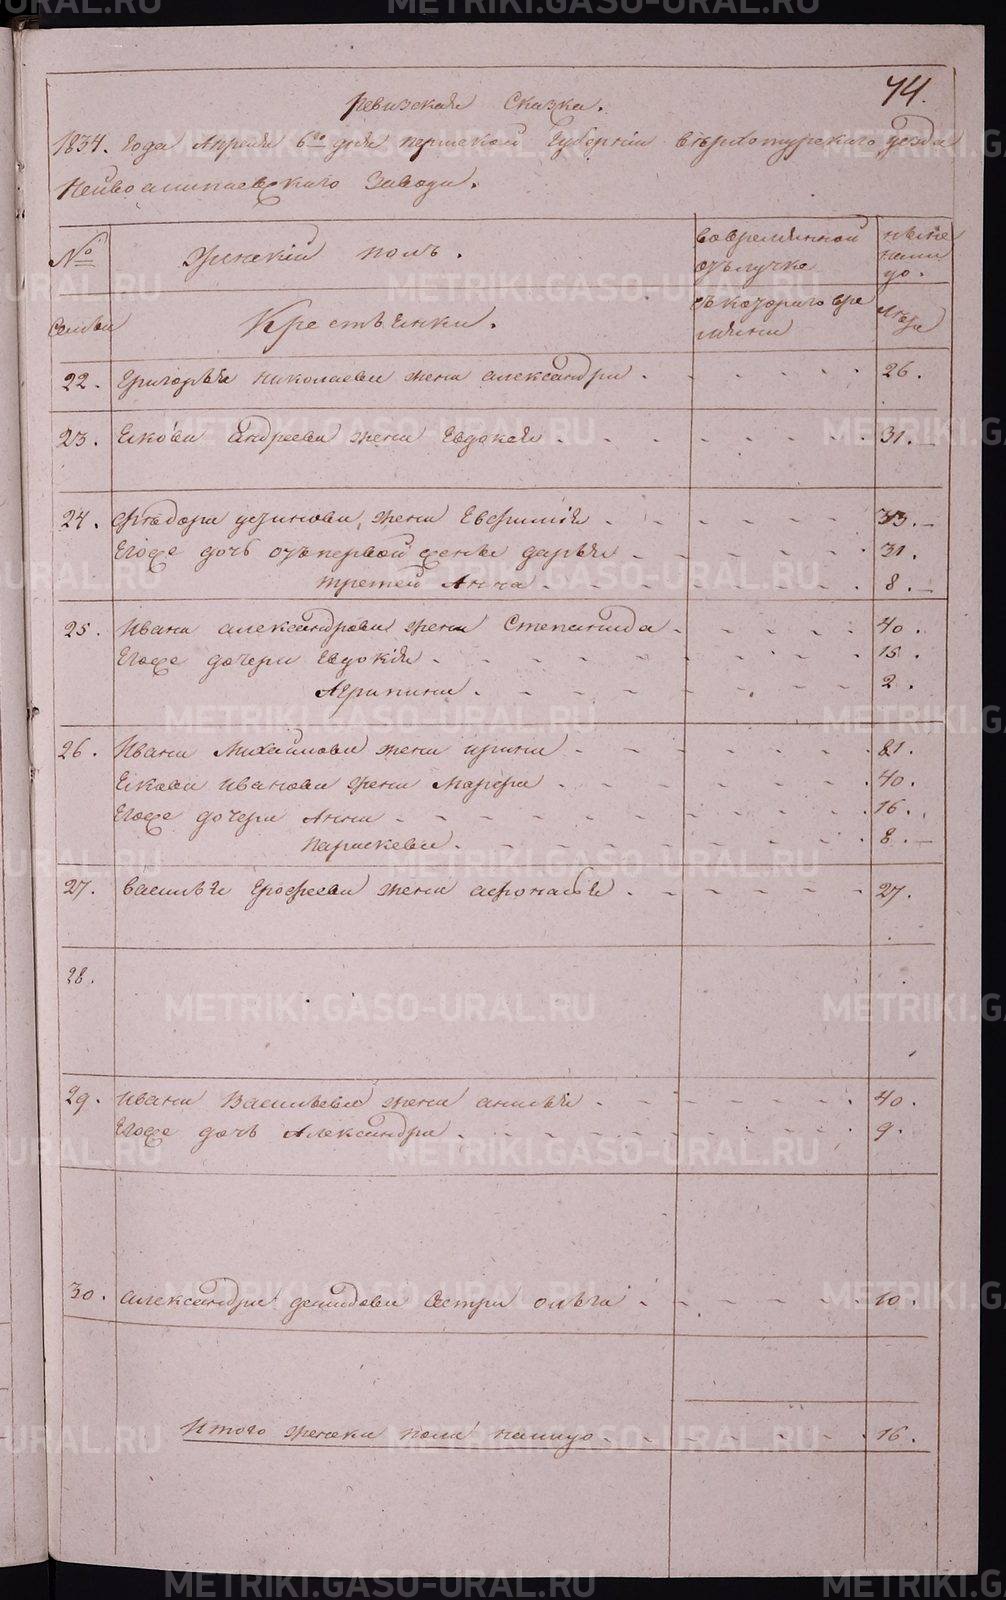 74.
Ревизская Сказка.
1834. Года Апреля 6го дня Пермской Губернии Верхотурского уезда
Нейвоалапаевского Завода.
№ семьи
Женский полъ.
Крестьянки.
Во временной отълучке
съ которого времяни
Ныне налицо.
Лета
22. Григорья Николаева жена Александра 26.
23. Екова Андреева жена Евдокея 31.
24. Федора устинова, жена Евфимия 33.
Егоже дочь отъ первой жены дарья 31.
третей Анна 8.
25. Ивана Александрова жена Степанида 40.
Егоже дочери Евдокия 15.
Агрипина 2.
26. Ивана Михайлова жена ирина 81.
Екова иванова жена Марфа 40.
Егоже дочери Анна 16.
параскева 8.
27. Василья Ерофеева жена афонасья 27.
28.
29. Ивана Васильева жена анисья 40.
Егоже дочь Александра 9.
30. Александра демидова Сестра ольга 10.
Итого женска пола налицо 16.
METRIKI.GASO-URAL.RU